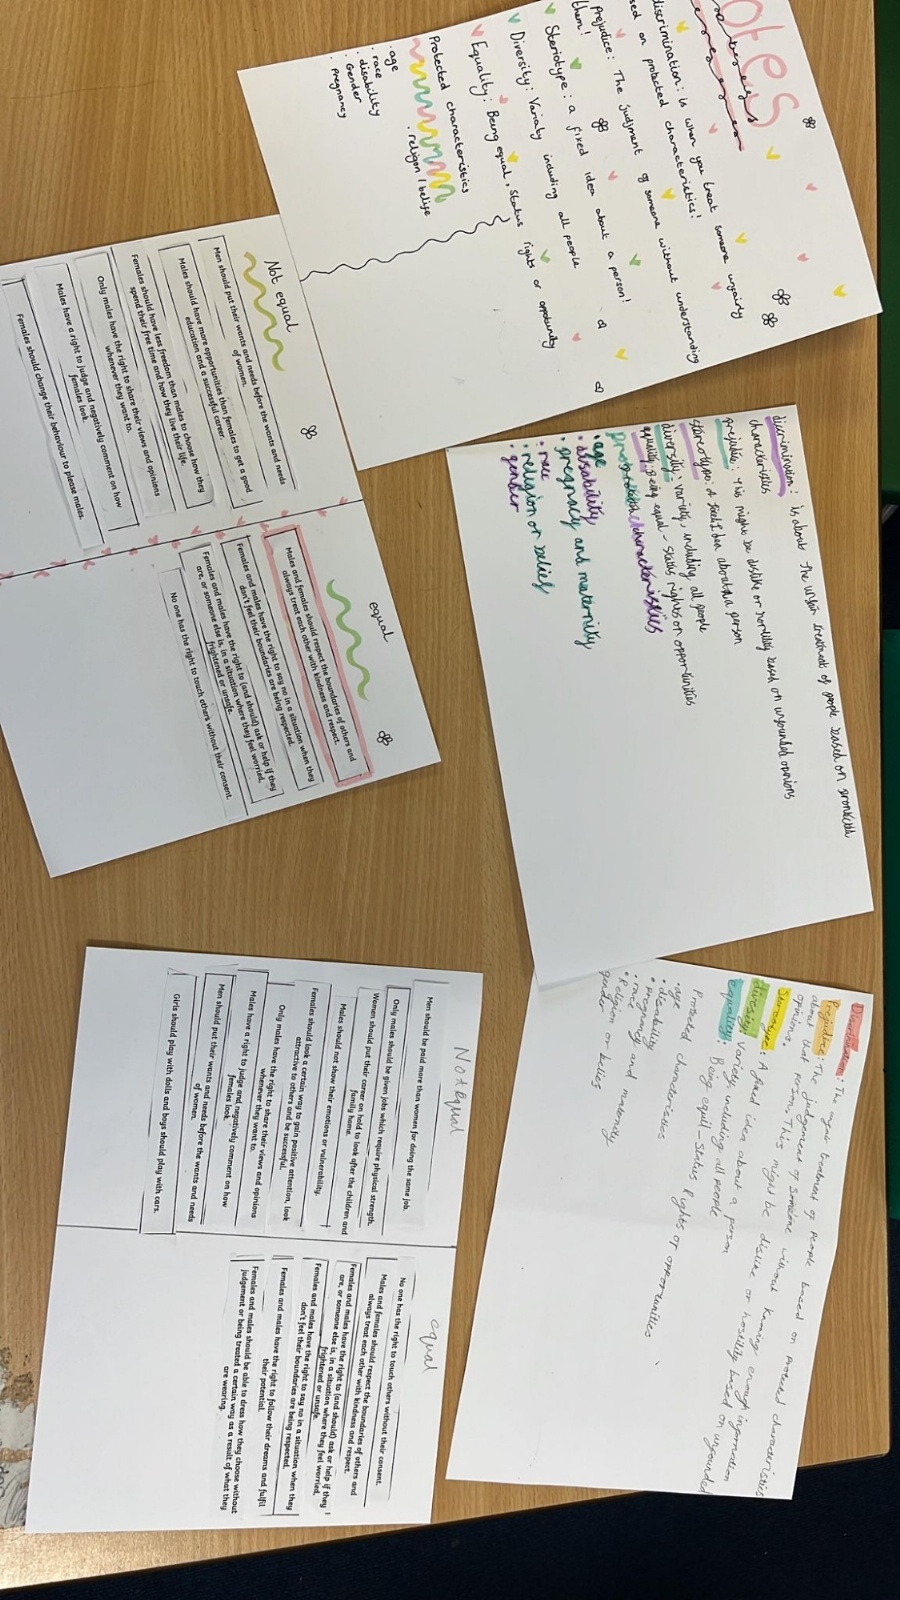 Notes
discrimination: is when you treat someone unfairly
based on protected characteristics!
Prejudice: The judgment of someone without understanding
them!
Steriotype: a fixed idea about a person!
Diversity: Variaty including all people
Equality: Being equal, Status rights or oppotunity
Protected characteristics
· age
· race
· disability
· Gender
· Pregnancy
· religon / belife
Not equal
Men should put their wants and needs before the wants and needs
of women.
Males should have more opportunities than females to get a good
education and a successful career.
Females should have less freedom than males to choose how they
spend their free time and how they live their life.
Only males have the right to share their views and opinions
whenever they want to.
Males have a right to judge and negatively comment on how
females look.
Females should change their behaviour to please males.
equal
Males and females should respect the boundaries of others and
always treat each other with kindness and respect.
Females and males have the right to say no in a situation when they
don't feel their boundaries are being respected.
Females and males have the right to (and should) ask or help if they
are, or someone else is, in a situation where they feel worried,
frightened or unsafe.
No one has the right to touch others without their consent.
discrimination: is about the unfair treatment of people based on
characteristics
prejudice: this might be dislike or hostility based on unfounded opinions
stereotype: A fixed idea about a person
diversity: variety, including all people
equality: being equal - status rights on opportunities
protected characteristics
· age
· disability
· pregnancy and maternity
· race
· religion or beliefs
· gender
Discrimination: The unfair treatment of people based on protected characteristics
Prejudice: The judgement of someone without knowing enough information
about that person. This might be dislike or hostility based on unfounded
opinions.
Stereotype: A fixed idea about a person
diversity: variety, including all people
equality: Being equil - Status Rights or opportunities
protected characteristics
· age
· disability
· Pregnancy and maternity
· race
· Religion or beliefs
gender
Not equal
Men should be paid more than women for doing the same job.
Only males should be given jobs which require physical strength.
Women should put their career on hold to look after the children and
family home.
Males should not show their emotions or vulnerability.
Females should look a certain way to gain positive attention, look
attractive to others and be successful.
Only males have the right to share their views and opinions
whenever they want to.
Males have a right to judge and negatively comment on how
females look.
Men should put their wants and needs before the wants and needs
of women.
Girls should play with dolls and boys should play with cars.
equal
No one has the right to touch others without their consent.
Males and females should respect the boundaries of others and
always treat each other with kindness and respect.
Females and males have the right to (and should) ask or help if they
are, or someone else is, in a situation where they feel worried,
frightened or unsafe.
Females and males have the right to say no in a situation when they
don't feel their boundaries are being respected.
Females and males have the right to follow their dreams and fulfil
their potential.
Females and males should be able to dress how they choose without
judgement or being treated a certain way as a result of what they
are wearing.